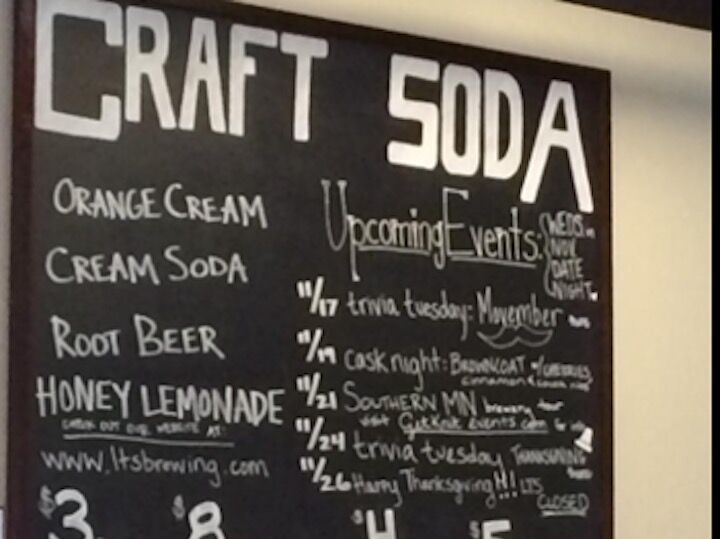 CRAFT SODA
ORANGE CREAM
CREAM SODA
ROOT BEER
HONEY LEMONADE
CHECK OUT OUR WEBSITE AT:
www.ltsbrewing.com
$3
$8
$4
$5
Upcoming Events:
WEDS.
NOV.
DATE
NIGHT
11/17 trivia tuesday: Movember
11/19 cask night: BROWNCOAT w/CHERRIES,
cinnamon &
11/21 SOUTHERN MN brewery tour
visit GetKnit events.com for info
11/24 trivia tuesday THANKSGIVING
11/26 Happy Thanksgiving!!! LTS
CLOSED